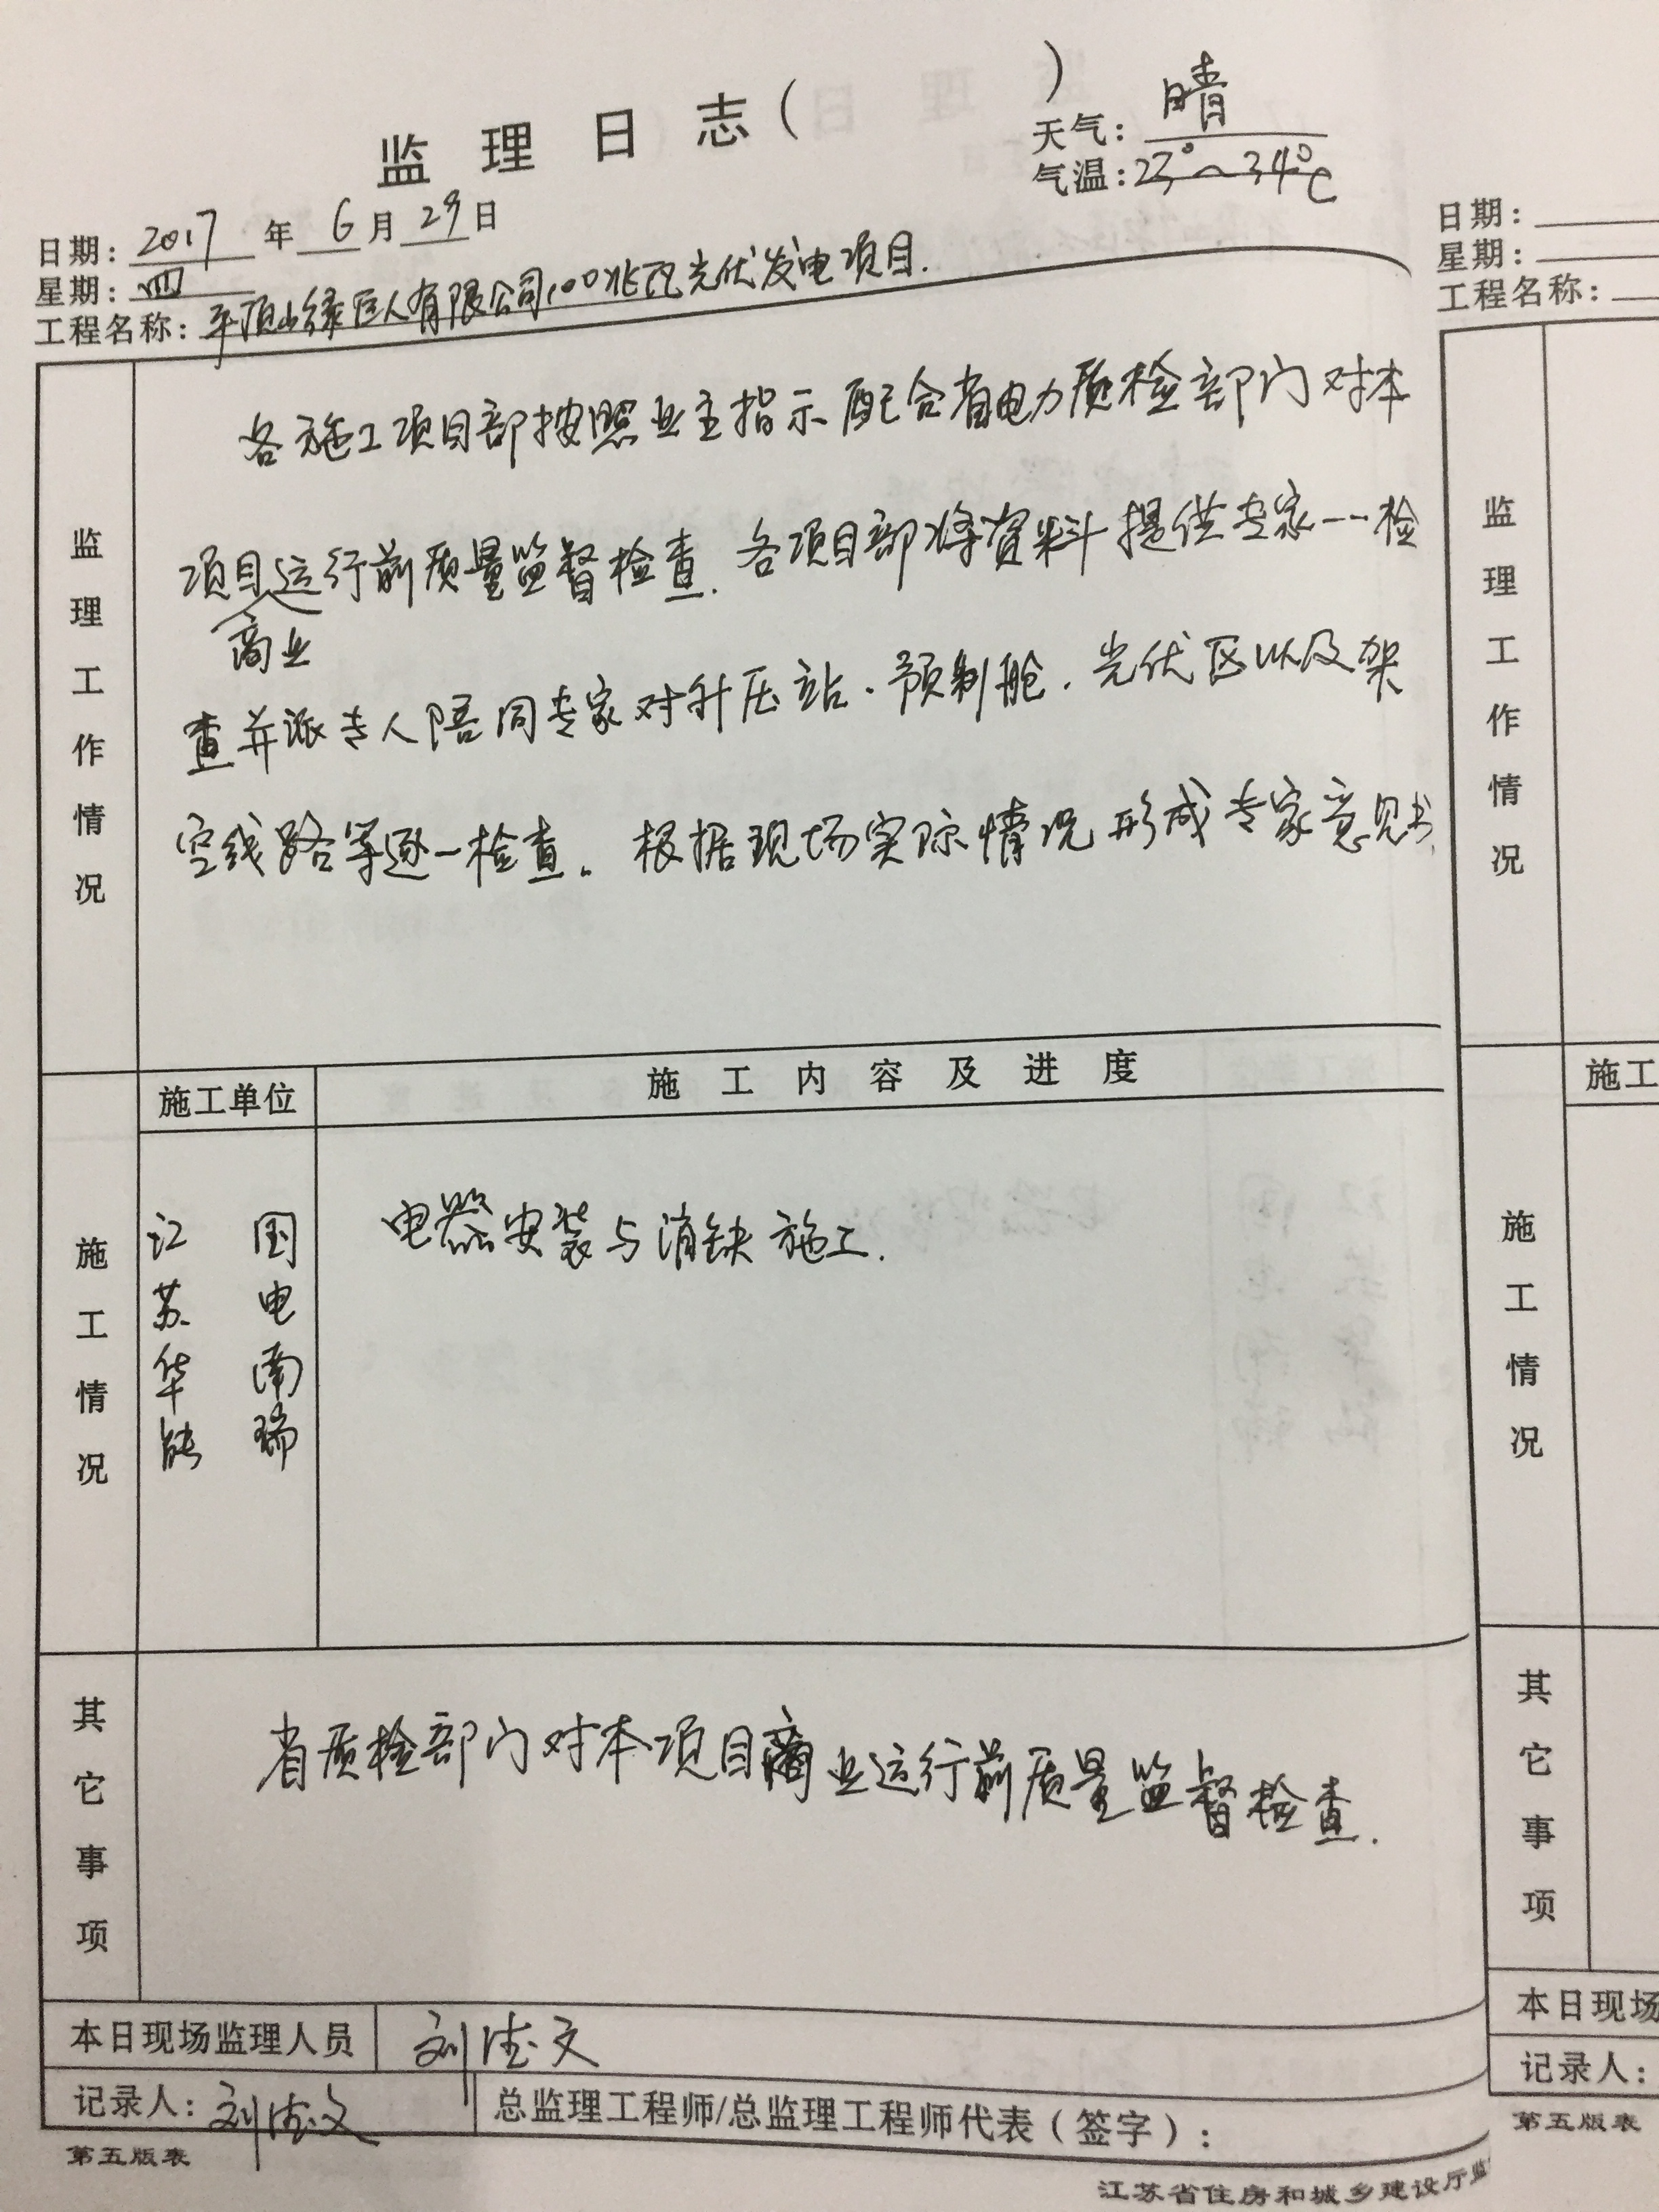 监理日志（　　　）
天气：晴
气温：23°～34℃
日期：2017年6月29日
星期：四
工程名称：平顶山绿巨人有限公司100兆瓦光伏发电项目.
监理工作情况
各施工项目部按照业主指示配合省电力质检部门对本
项目商业运行前质量监督检查.各项目部将资料提供专家一一检
查并派专人陪同专家对升压站.预制舱.光伏区以及架
空线路等逐一检查。根据现场实际情况形成专家意见书.
施工情况
施工单位
施工内容及进度
江苏华能
国电南瑞
电器安装与消缺施工.
其它事项
省质检部门对本项目商业运行前质量监督检查.
本日现场监理人员
刘德文
记录人：刘德文
总监理工程师/总监理工程师代表（签字）：
第五版表
江苏省住房和城乡建设厅监
日期：
星期：
工程名称：
监理工作情况
施工
施工情况
其它事项
本日现场
记录人：
第五版表